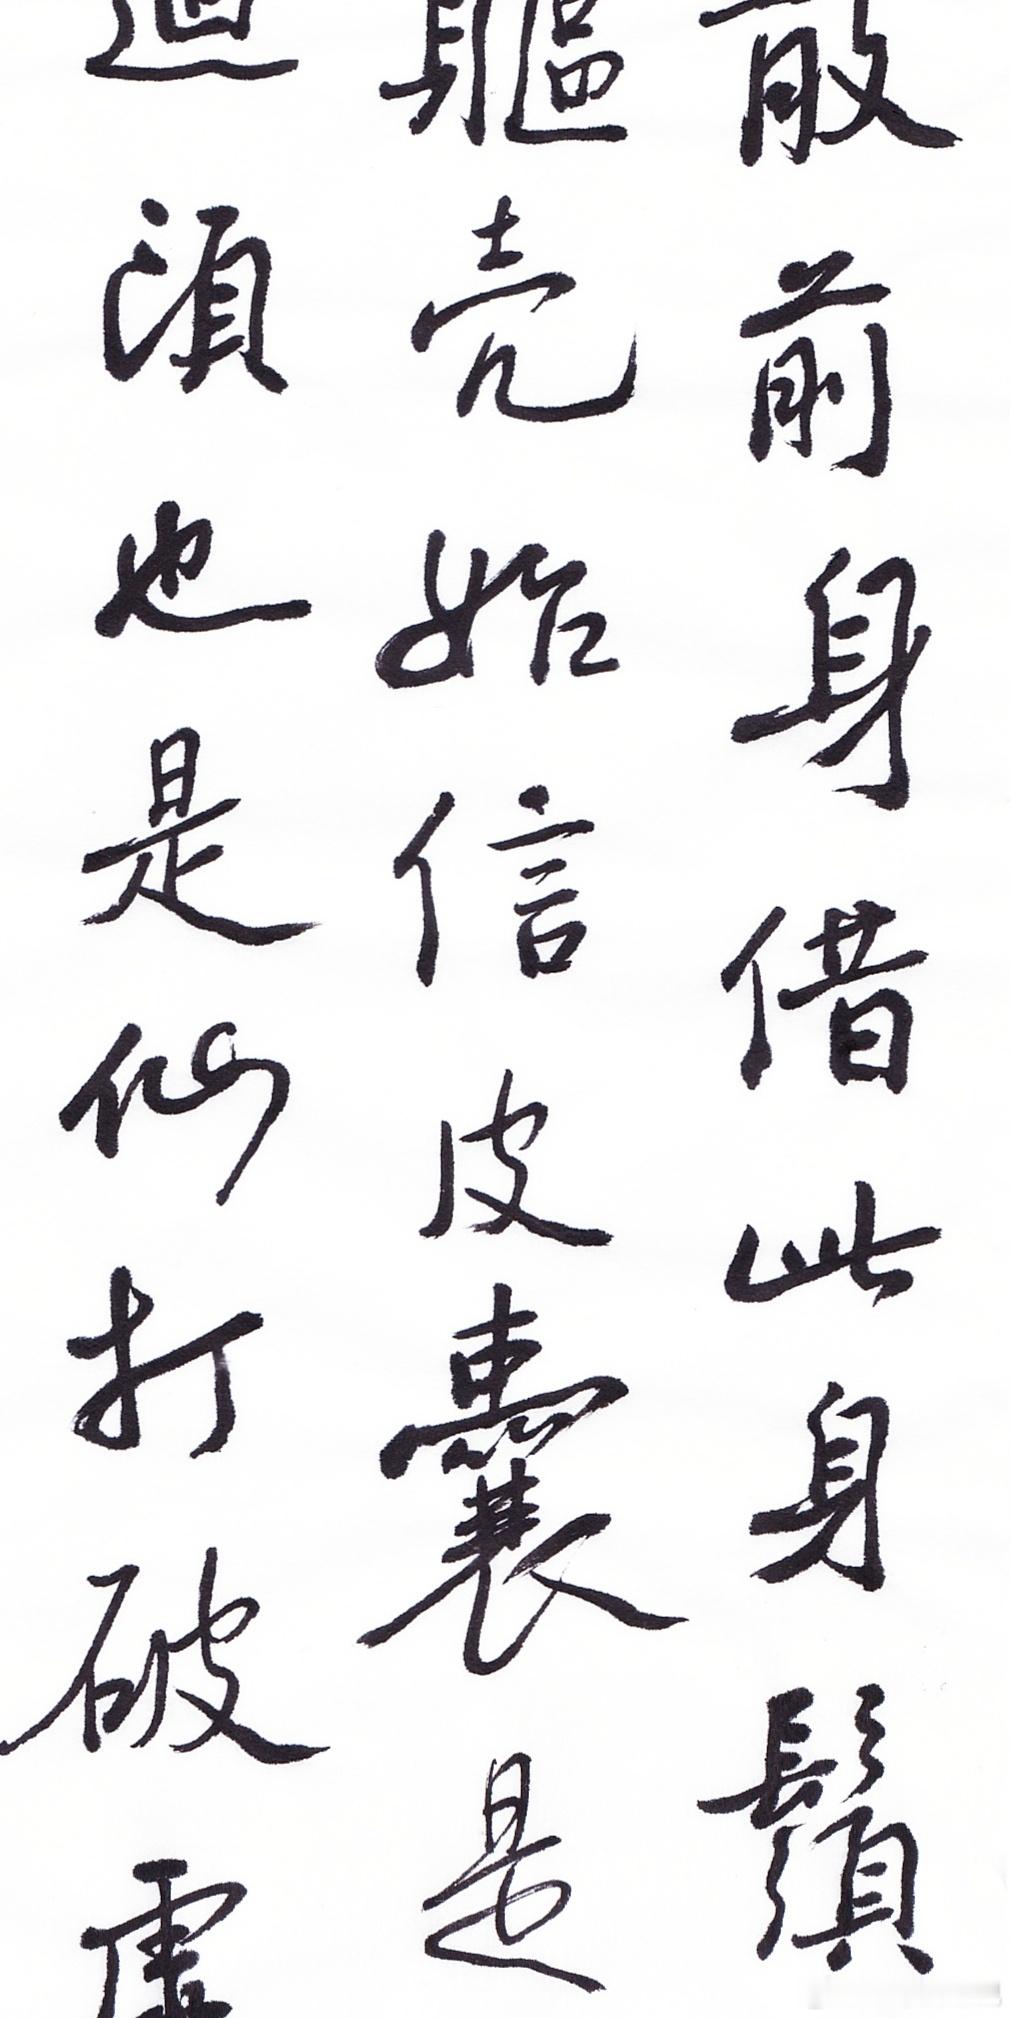 散前身借此身鬚
軀壳始信皮囊是
迴頭也是仙打破虛